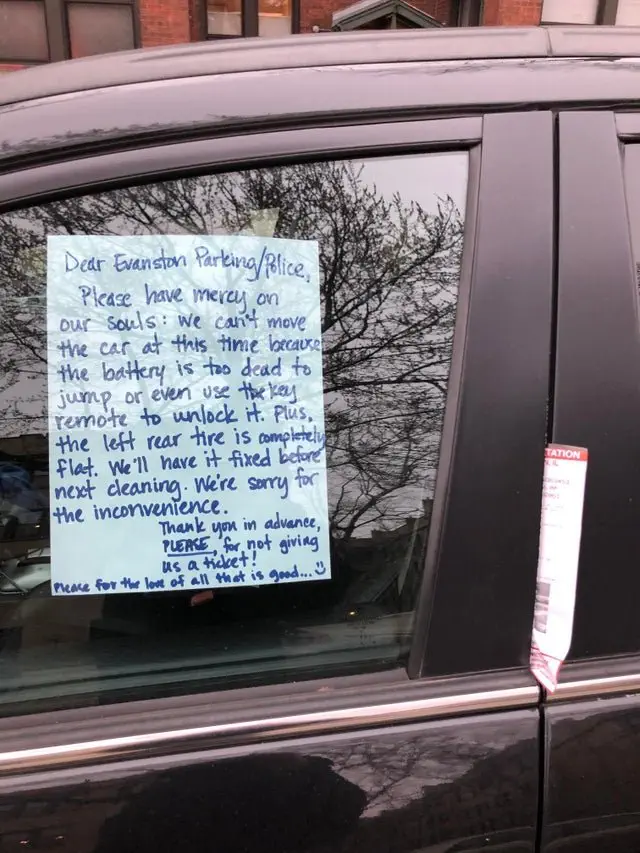 Dear Evanston Parking/Police,
Please have mercy on
our souls: we can't move
the car at this time because
the battery is too dead to
jump or even use the key
remote to unlock it. Plus,
the left rear tire is completely
flat. We'll have it fixed before
next cleaning. We're sorry for
the inconvenience.
Thank you in advance,
PLEASE, for not giving
us a ticket!
Please for the love of all that is good...
TATION